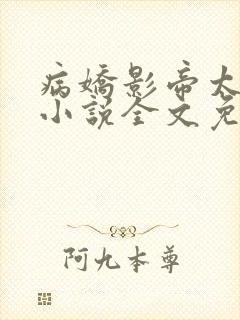 病嬌影帝太
小說全文免
阿九本尊